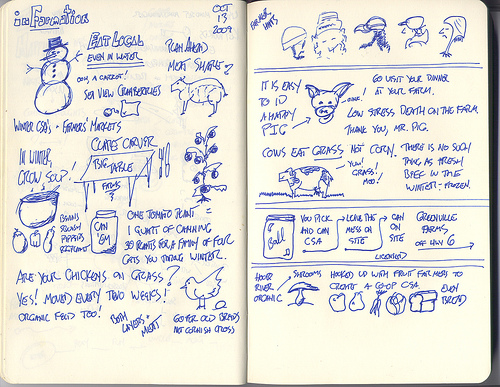 information
OCT
13
2009
EAT LOCAL
EVEN IN WINTER
OOH, A CARROT!
SEA VIEW CRANBERRIES
PLAN AHEAD
MEAT SHARES?
WINTER CSA'S - FARMERS' MARKETS
IN WINTER,
GROW SOUP!
CLARE CARVER
BIG TABLE
FARMS
BEANS
SQUASH
PEPPERS
CAN
'EM
ONE TOMATO PLANT =
1 QUART OF CANNING
30 PLANTS FOR A FAMILY OF FOUR
GETS YOU THROUGH WINTER.
ARE YOUR CHICKENS ON GRASS?
YES! MOVED EVERY TWO WEEKS!
ORGANIC FEED TOO!
BOTH
LAYERS +
MEAT
GO FOR OLD BREEDS
NOT CORNISH CROSS
FARMER
HATS
IT IS EASY
TO ID
A HAPPY
PIG
OINK.
GO VISIT YOUR DINNER
AT YOUR FARM.
LOW STRESS DEATH ON THE FARM
THANK YOU, MR. PIG.
COWS EAT GRASS NOT CORN. THERE IS NO SUCH
THING AS FRESH
BEEF IN THE
WINTER - FROZEN.
YUM!
GRASS!
MOO!
Ball
YOU PICK
AND CAN
CSA
LEAVE THE
MESS ON
SITE
CAN
ON
SITE
LICENSED
GREENVILLE
FARMS
OFF HWY 6
HOOD
RIVER
ORGANIC
SHROOMS
HOOKED UP WITH FRUIT FARMERS TO
CREATE A CO-OP CSA
EVEN
BREAD